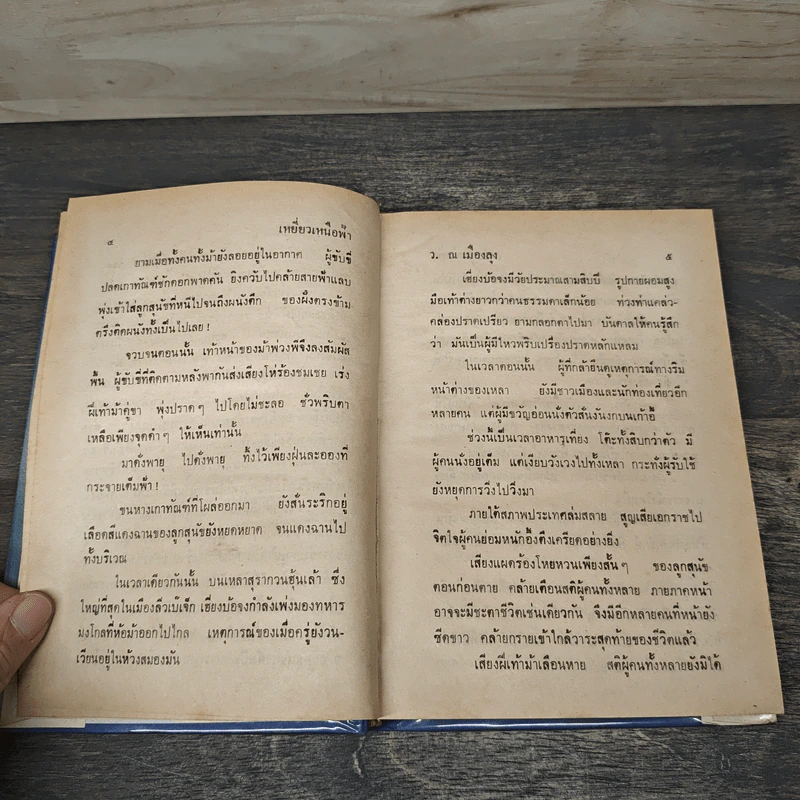 ๔
เหยี่ยวเหนือฟ้า
ยามเมื่อทั้งคนทั้งม้ายังลอยอยู่ในอากาศ ผู้ขับขี่
ปลดเกาทัณฑ์ชักดอกพาดคัน ยิงควับไปคล้ายสายฟ้าแลบ
พุ่งเข้าใส่ลูกสุนัขที่หนีไปจนถึงผนังตึก ของฝั่งตรงข้าม
ตรึงติดผนังทั้งเป็นไปเลย !
จวบจนตอนนั้น เท้าหน้าของม้าพ่วงพีจึงลงสัมผัส
พื้น ผู้ขับขี่ที่ติดตามหลังพากันส่งเสียงโห่ร้องชมเชย เร่ง
ฝีเท้าม้าคู่ขา พุ่งปราดๆ ไปโดยไม่ชะลอ ชั่วพริบตา
เหลือเพียงจุดดำๆ ให้เห็นเท่านั้น
มาดั่งพายุ ไปดั่งพายุ ทิ้งไว้เพียงฝุ่นละอองที่
กระจายเต็มฟ้า !
ขนหางเกาทัณฑ์ที่โผล่ออกมา ยังสั่นระริกอยู่
เลือดสีแดงฉานของลูกสุนัขยังหยดหยาด จนแดงฉานไป
ทั้งบริเวณ
ในเวลาเดียวกันนั้น บนเหลาสุรากวนฮุ้นเล้า ซึ่ง
ใหญ่ที่สุดในเมืองลิ่วเบ๊เจ็ก เฮี่ยงบ้อจงกำลังเพ่งมองทหาร
มงโกลที่ห้อม้าออกไปไกล เหตุการณ์ของเมื่อครู่ยังวน-
เวียนอยู่ในห้วงสมองมัน
ว. ณ เมืองลุง
๕
เฮี่ยงบ้อจงมีวัยประมาณสามสิบปี รูปกายผอมสูง
มือเท้าต่างยาวกว่าคนธรรมดาเล็กน้อย พ่วงท่าแคล่ว-
คล่องปราดเปรียว ยามกลอกตาไปมา บันดาลให้คนรู้สึก
ว่า มันเป็นผู้มีไหวพริบเปรื่องปราดหลักแหลม
ในเวลาตอนนั้น ผู้ที่กล้ายืนดูเหตุการณ์ทางริม
หน้าต่างของเหลา ยังมีชาวเมืองและนักท่องเที่ยวอีก
หลายคน แต่ผู้มีขวัญอ่อนนั่งตัวสั่นงันงกบนเก้าอี้
ช่วงนี้เป็นเวลาอาหารเที่ยง โต๊ะทั้งสิบกว่าตัว มี
ผู้คนนั่งอยู่เต็ม แต่เงียบวังเวงไปทั้งเหลา กระทั่งผู้รับใช้
ยังหยุดการวิ่งไปวิ่งมา
ภายใต้สภาพประเทศล่มสลาย สูญเสียเอกราชไป
จิตใจผู้คนย่อมหนักอึ้งตึงเครียดอย่างยิ่ง
เสียงแผดร้องโหยหวนเพียงสั้นๆ ของลูกสุนัข
ตอนก่อนตาย คล้ายเตือนสติผู้คนทั้งหลาย ภายภาคหน้า
อาจจะมีชะตาชีวิตเช่นเดียวกัน จึงมีอีกหลายคนที่หน้ายัง
ซีดขาว คล้ายกรายเข้าใกล้วาระสุดท้ายของชีวิตแล้ว
เสียงฝีเท้าม้าเลือนหาย สติผู้คนทั้งหลายยังมิได้